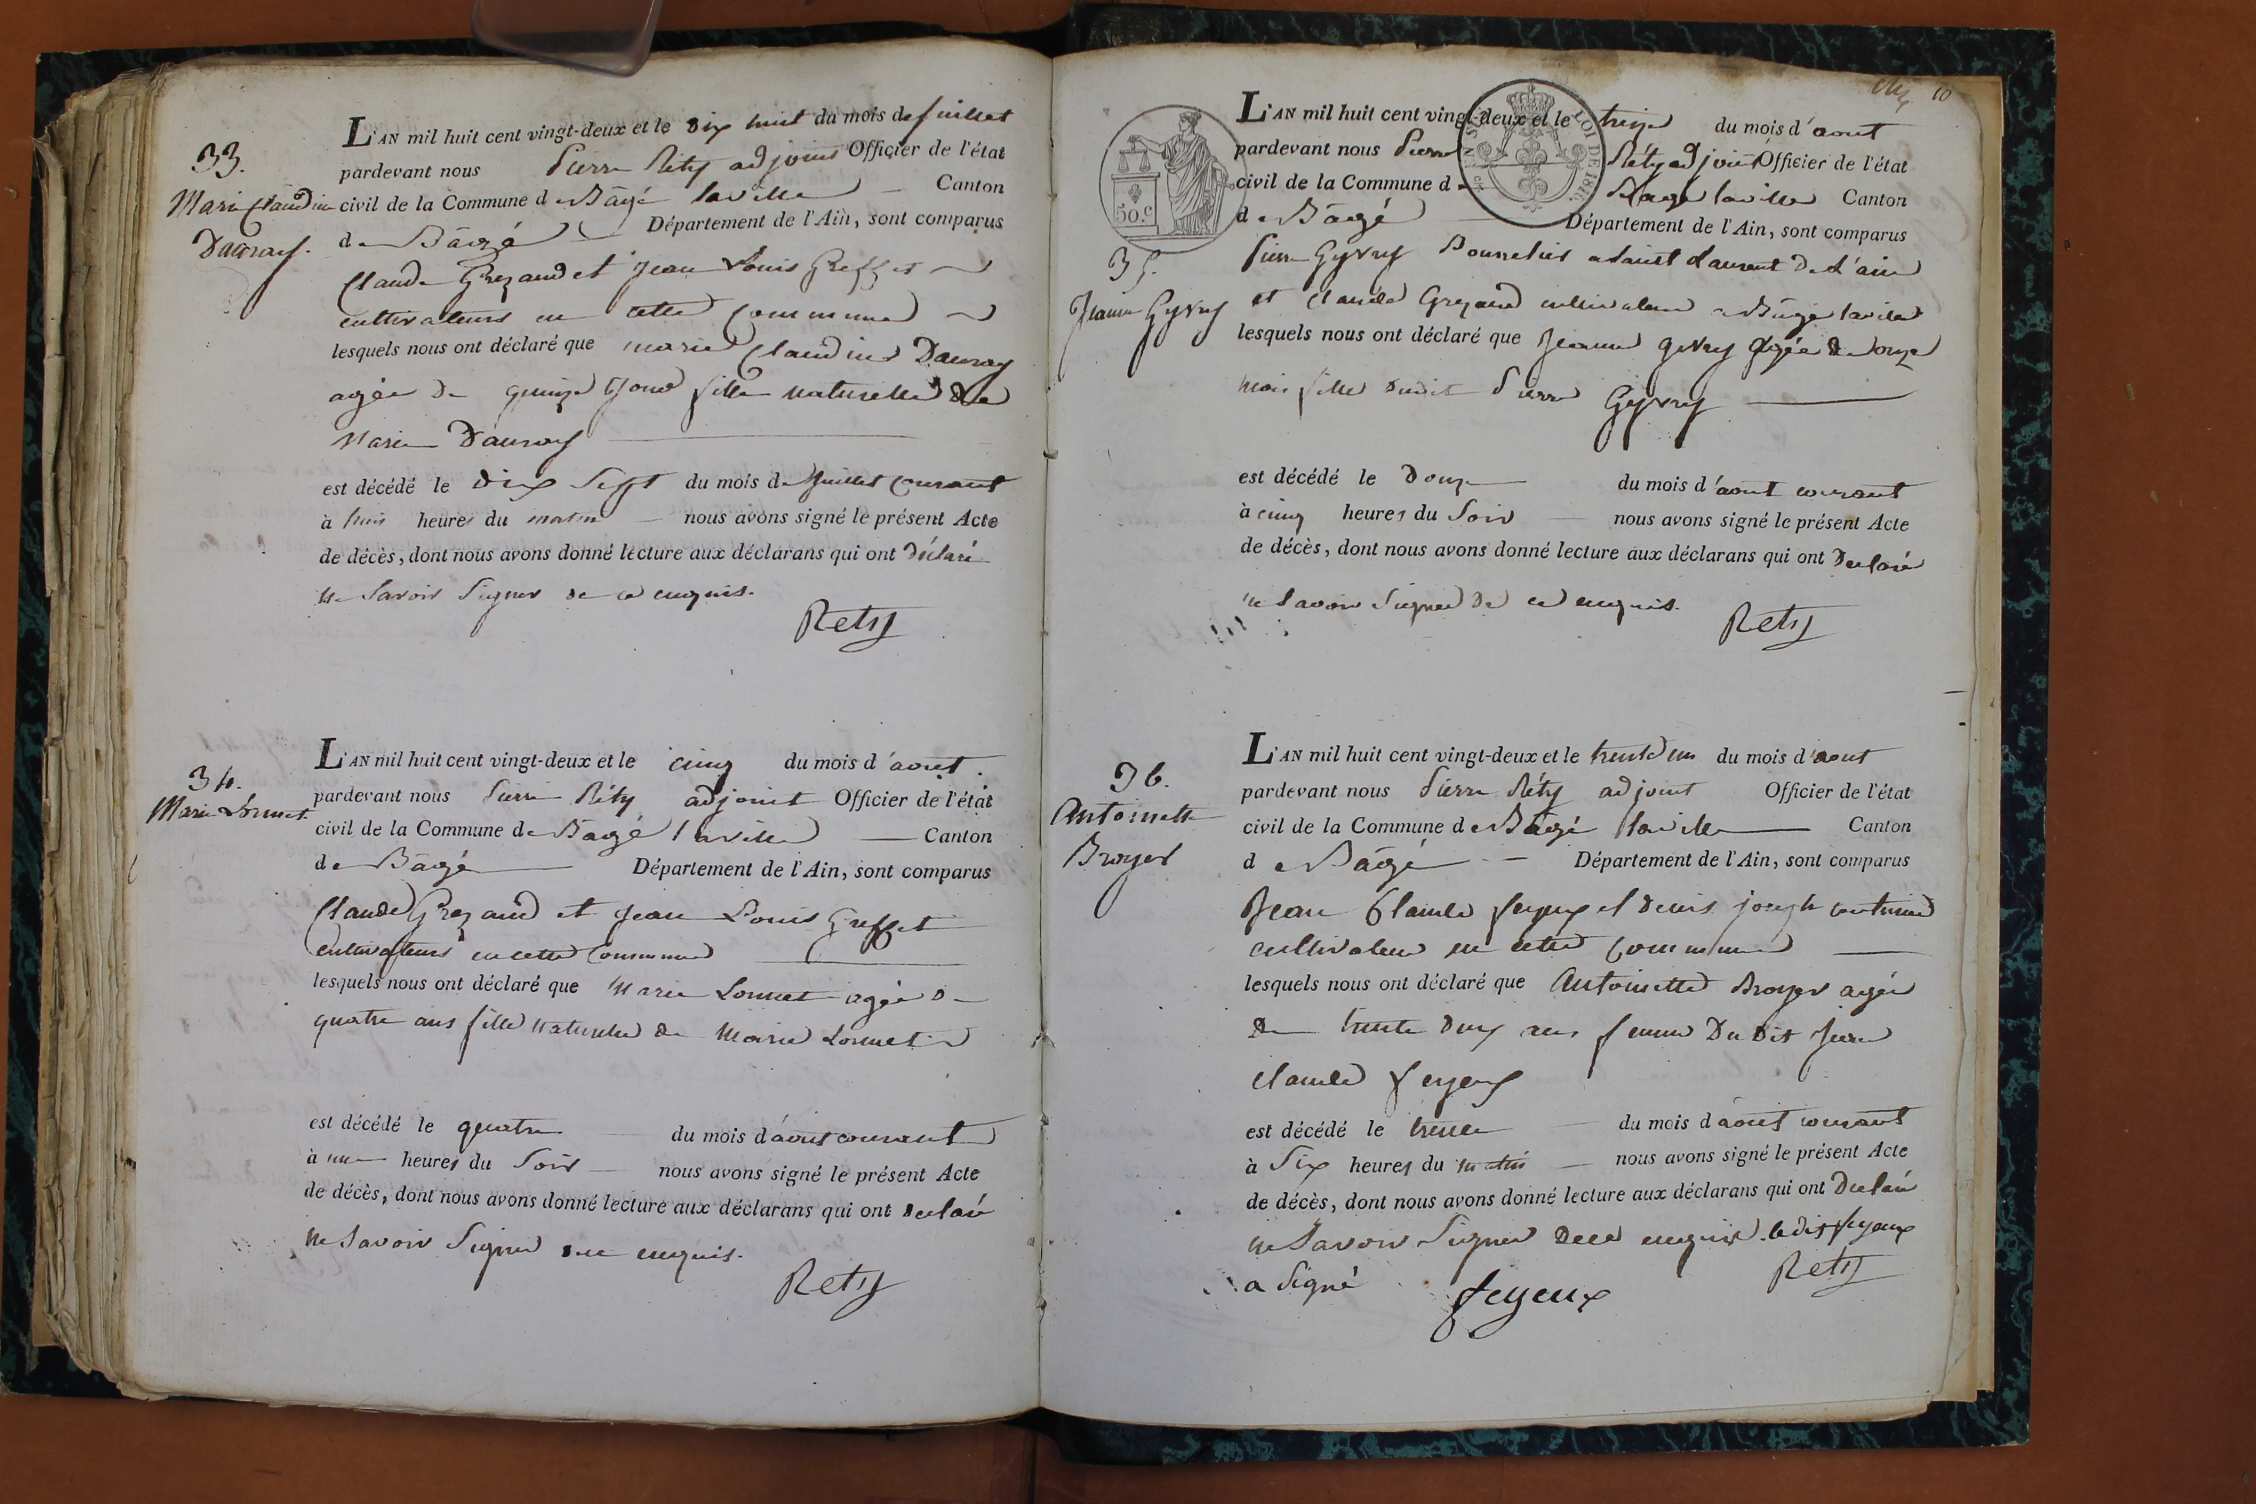 33.
Marie Claudine
Dauvray.
L'AN mil huit cent vingt-deux et le dix huit du mois de juillet
pardevant nous Pierre Réty adjoint Officier de l'état
civil de la Commune de Bâgé laville Canton
de Bâgé Département de l'Ain, sont comparus
Claude Grezaud et Jean Louis Greffet
cultivateurs en cette Commune
lesquels nous ont déclaré que marie Claudine Dauvray
agée de quinze jour fille naturelle de
Marie Dauvray
est décédé le dix Sept du mois de Juillet Courant
à huit heures du matin nous avons signé le présent Acte
de décès, dont nous avons donné lecture aux déclarans qui ont déclaré
ne Savoir Signer de ce enquis.
Rety
34.
Marie Lonnet
L'AN mil huit cent vingt-deux et le cinq du mois d'aout.
pardevant nous Pierre Réty adjoint Officier de l'état
civil de la Commune de Bâgé laville Canton
de Bâgé Département de l'Ain, sont comparus
Claude Grezaud et Jean Louis Greffet
cultivateurs en cette Commune
lesquels nous ont déclaré que Marie Lonnet agée de
quatre ans fille naturelle de Marie Lonnet
est décédé le quatre du mois d'aout courant
à une heures du Soir nous avons signé le présent Acte
de décès, dont nous avons donné lecture aux déclarans qui ont declaré
ne Savoir Signer de ce enquis.
Rety
10
50.C
LOI DE 1816
35.
Jeanne Gyvry
L'AN mil huit cent vingt-deux et le treize du mois d'aout
pardevant nous Pierre Réty adjoint Officier de l'état
civil de la Commune de Bâgé laville Canton
de Bâgé Département de l'Ain, sont comparus
Pierre Gyvry Bourrelier a Saint Laurent de L'ain
et Claude Grezaud cultivateur a Bâgé laville
lesquels nous ont déclaré que Jeanne Gyvry agée de onze
mois fille dudit Pierre Gyvry
est décédé le douze du mois d'aout courant
à cinq heures du Soir nous avons signé le présent Acte
de décès, dont nous avons donné lecture aux déclarans qui ont declaré
ne Savoir Signer de ce enquis.
Rety
36.
Antoinette
Broyer
L'AN mil huit cent vingt-deux et le trente un du mois d'aout
pardevant nous Pierre Réty adjoint Officier de l'état
civil de la Commune de Bâgé laville Canton
de Bâgé Département de l'Ain, sont comparus
Jean Claude feyeux et denis joseph
cultivateur en cette Commune
lesquels nous ont déclaré que Antoinette Broyer agée
de trente deux ans femme Du Dit Jean
Claude feyeux
est décédé le trente du mois d'aout courant
à Six heures du matin nous avons signé le présent Acte
de décès, dont nous avons donné lecture aux déclarans qui ont declaré
ne Savoir Signer de ce enquis. ledit feyeux
a Signé
Rety
feyeux